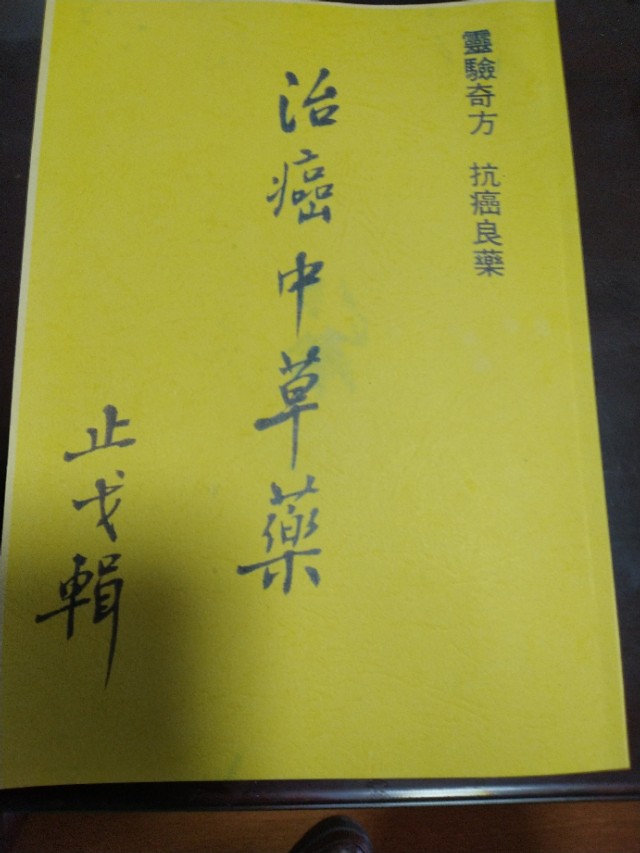 靈驗奇方 抗癌良藥
治癌中草藥
止戈輯